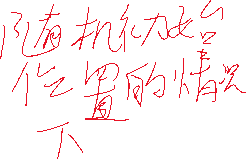 随机初始
位置的情况
下